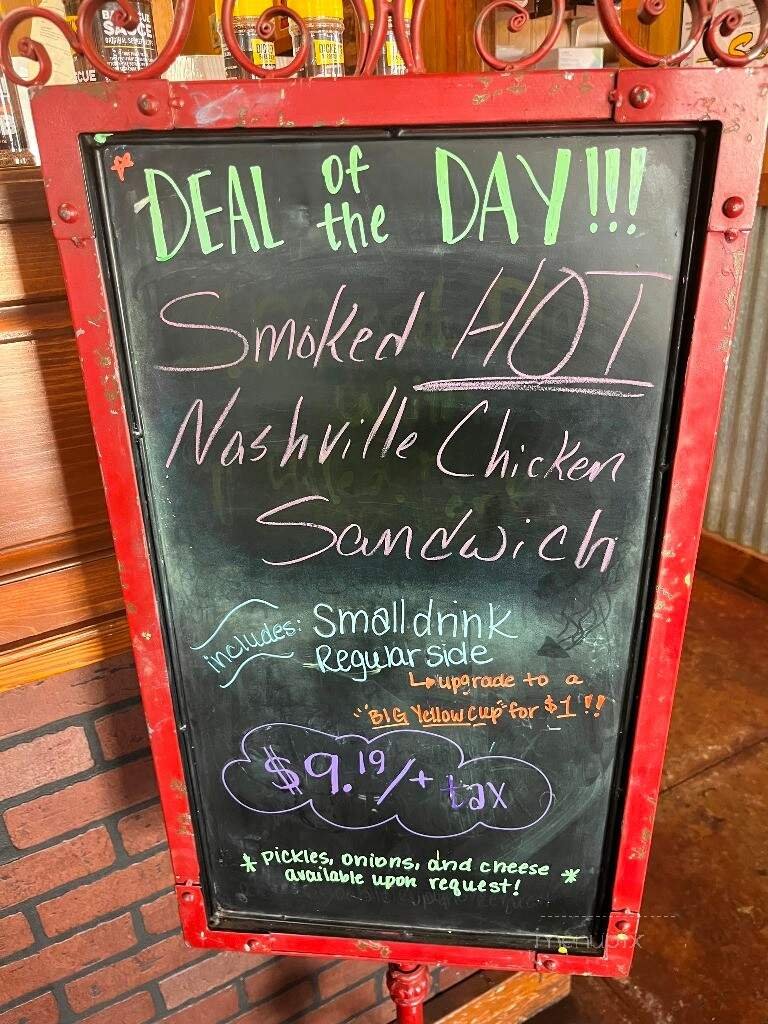 SAUCE
DICKEY'S
DICKEY'S
CUE
DEAL of the DAY!!!
Smoked HOT
Nashville Chicken
Sandwich
includes: Small drink
Regular side
↳ upgrade to a
"BIG Yellow Cup" for $1!!
$9.19/+ tax
* pickles, onions, and cheese *
available upon request!
menupix